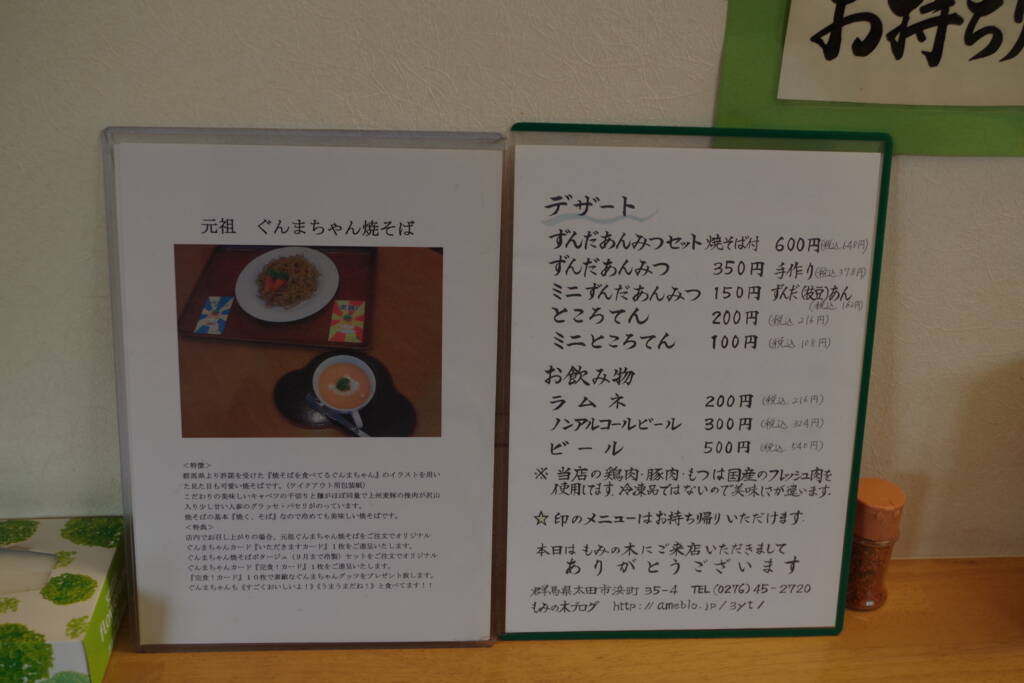 お持ち
元祖　ぐんまちゃん焼そば
＜特徴＞
群馬県より許諾を受けた『焼そばを食べてるぐんまちゃん』のイラストを用い
た見た目も可愛い焼そばです。（テイクアウト用包装紙）
こだわりの美味しいキャベツの千切りと麺がほぼ同量で上州麦豚の挽肉が沢山
入り少し甘い人参のグラッセ・パセリがのっています。
焼そばの基本『焼く、そば』なので冷めても美味しい焼そばです。
＜特典＞
店内でお召し上がりの場合、元祖ぐんまちゃん焼そばをご注文でオリジナル
ぐんまちゃんカード『いただきますカード』１枚をご進呈いたします。
ぐんまちゃん焼そばポタージュ（９月まで冷製）セットをご注文でオリジナル
ぐんまちゃんカード『完食！カード』１枚をご進呈いたします。
『完食！カード』１０枚で素敵なぐんまちゃんグッツをプレゼント致します。
ぐんまちゃんも《すごくおいしいよ！》《うまうまだね！》と食べてます！！
デザート
ずんだあんみつセット 焼そば付 600円(税込648円)
ずんだあんみつ 350円 手作り(税込378円)
ミニずんだあんみつ 150円 ずんだ(枝豆)あん
(税込 162円)
ところてん 200円 (税込 216円)
ミニところてん 100円 (税込 108円)
お飲み物
ラムネ 200円 (税込 216円)
ノンアルコールビール 300円 (税込 324円)
ビール 500円 (税込 540円)
※ 当店の鶏肉・豚肉・もつは国産のフレッシュ肉を
使用してます。冷凍品ではないので美味しさが違います。
☆印のメニューはお持ち帰りいただけます。
本日は もみの木にご来店いただきまして
ありがとうございます
群馬県太田市浜町 35-4 TEL (0276) 45-2720
もみの木ブログ http://ameblo.jp/3yt/